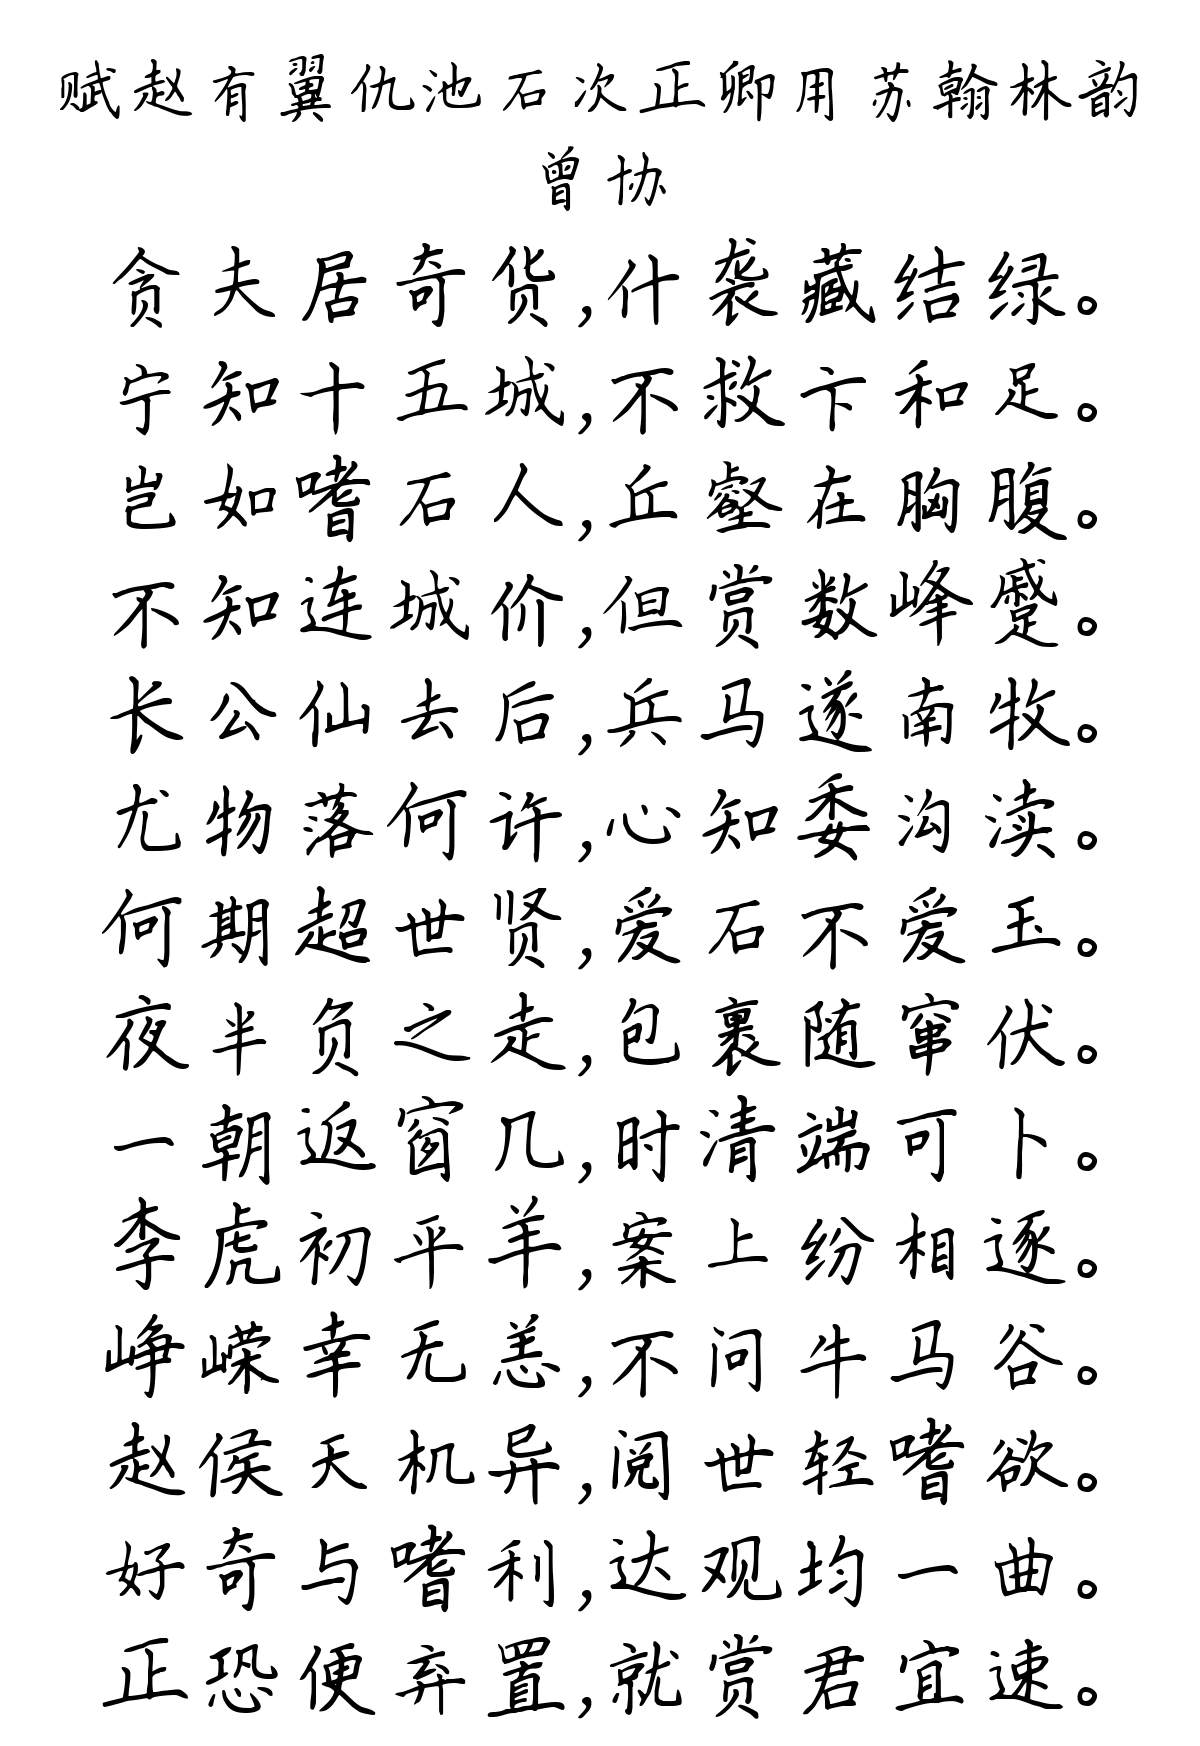 赋赵有翼仇池石次正卿用苏翰林韵
曾协
贪夫居奇货,什袭藏结绿。
宁知十五城,不救卞和足。
岂如嗜石人,丘壑在胸腹。
不知连城价,但赏数峰蹙。
长公仙去后,兵马遂南牧。
尤物落何许,心知委沟渎。
何期超世贤,爱石不爱玉。
夜半负之走,包裹随窜伏。
一朝返窗几,时清端可卜。
李虎初平羊,案上纷相逐。
峥嵘幸无恙,不问牛马谷。
赵侯天机异,阅世轻嗜欲。
好奇与嗜利,达观均一曲。
正恐便弃置,就赏君宜速。